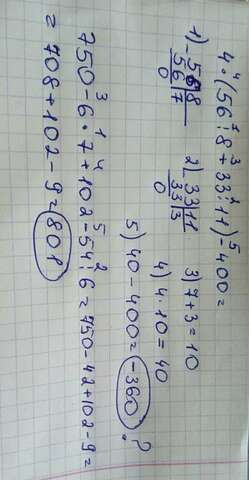 4·(56:8+33:11)-400=
1) 56|8
56|7
0
2) 33|11
33|3
0
3) 7+3=10
4) 4·10=40
5) 40-400=-360 ?
750-6·7+102-54:6=750-42+102-9=
=708+102-9=801